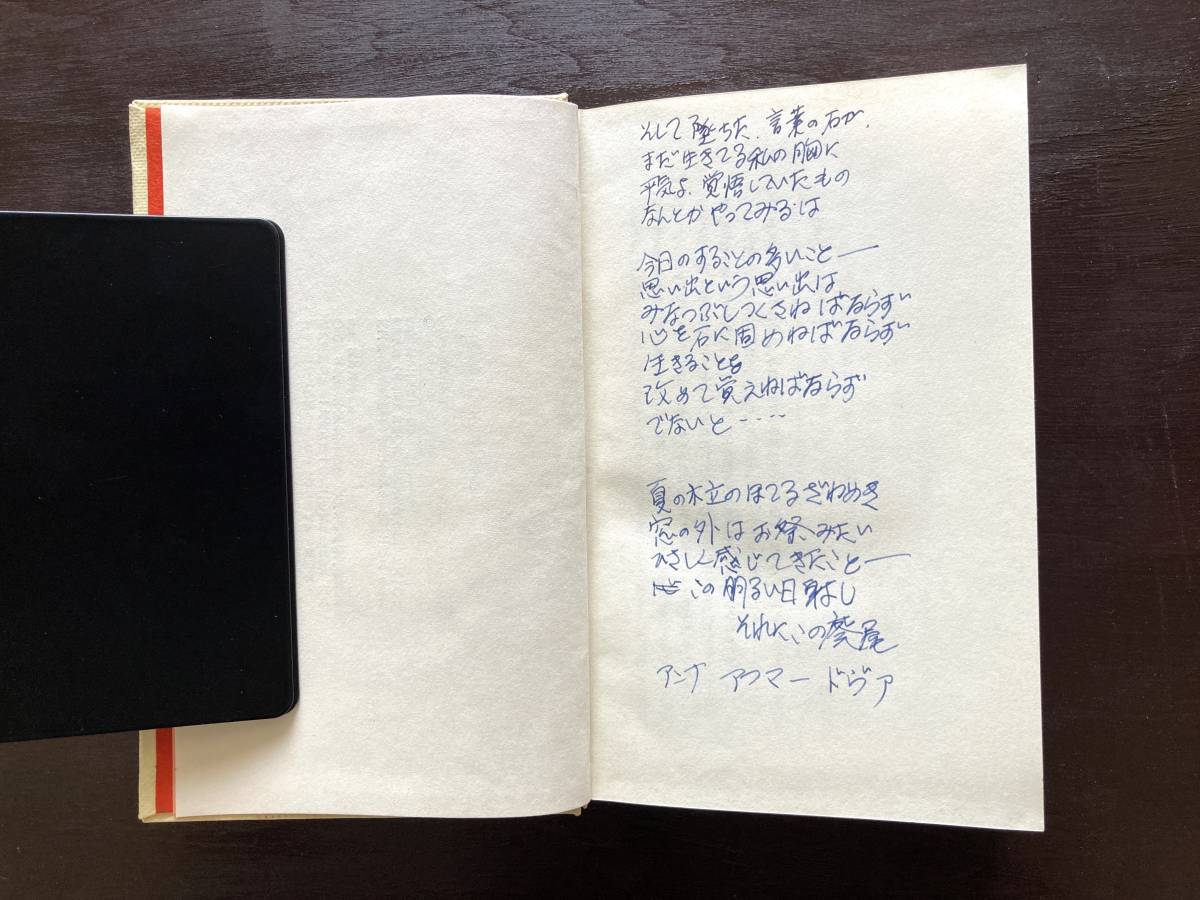 そして墜ちた、言葉の石が、
まだ生きてる私の胸に
平気よ、覚悟していたもの
なんとかやってみるは
今日のすることの多いこと――
思い出という思い出は
みなつぶしつくさねばならず
心を石に固めねばならず
生きることを
改めて覚えねばならず
でないと・・・・
夏の木立のほてるざわめき
窓の外はお祭みたい
ひさしく感じてきたこと――
この明るい日射し
それにこの
アンナ アフマードヴァ